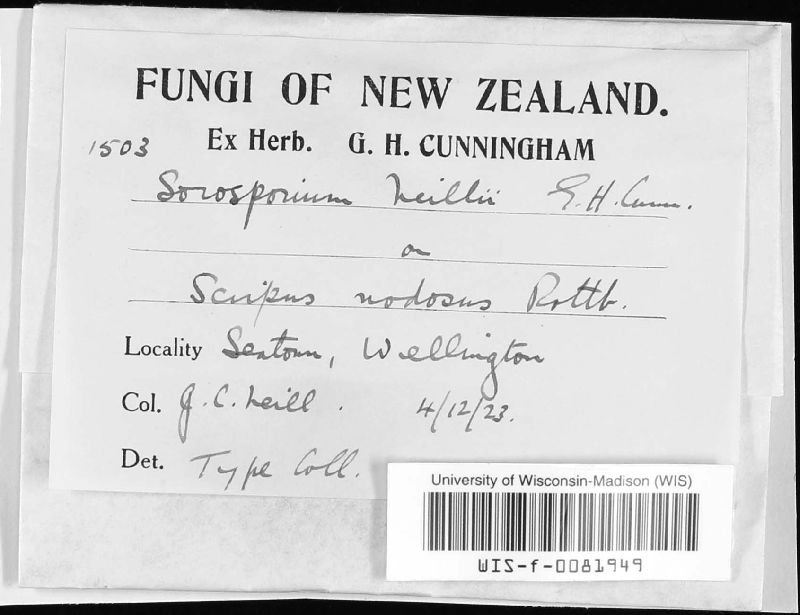 FUNGI OF NEW ZEALAND.
1503 Ex Herb. G. H. CUNNINGHAM
Sorosporium Neillii G. H. Cunn.
on
Scirpus nodosus Rottb.
Locality Seatoun, Wellington
Col. J. C. Neill. 4/12/23.
Det. Type Coll.
University of Wisconsin-Madison (WIS)
WIS-f-0081949